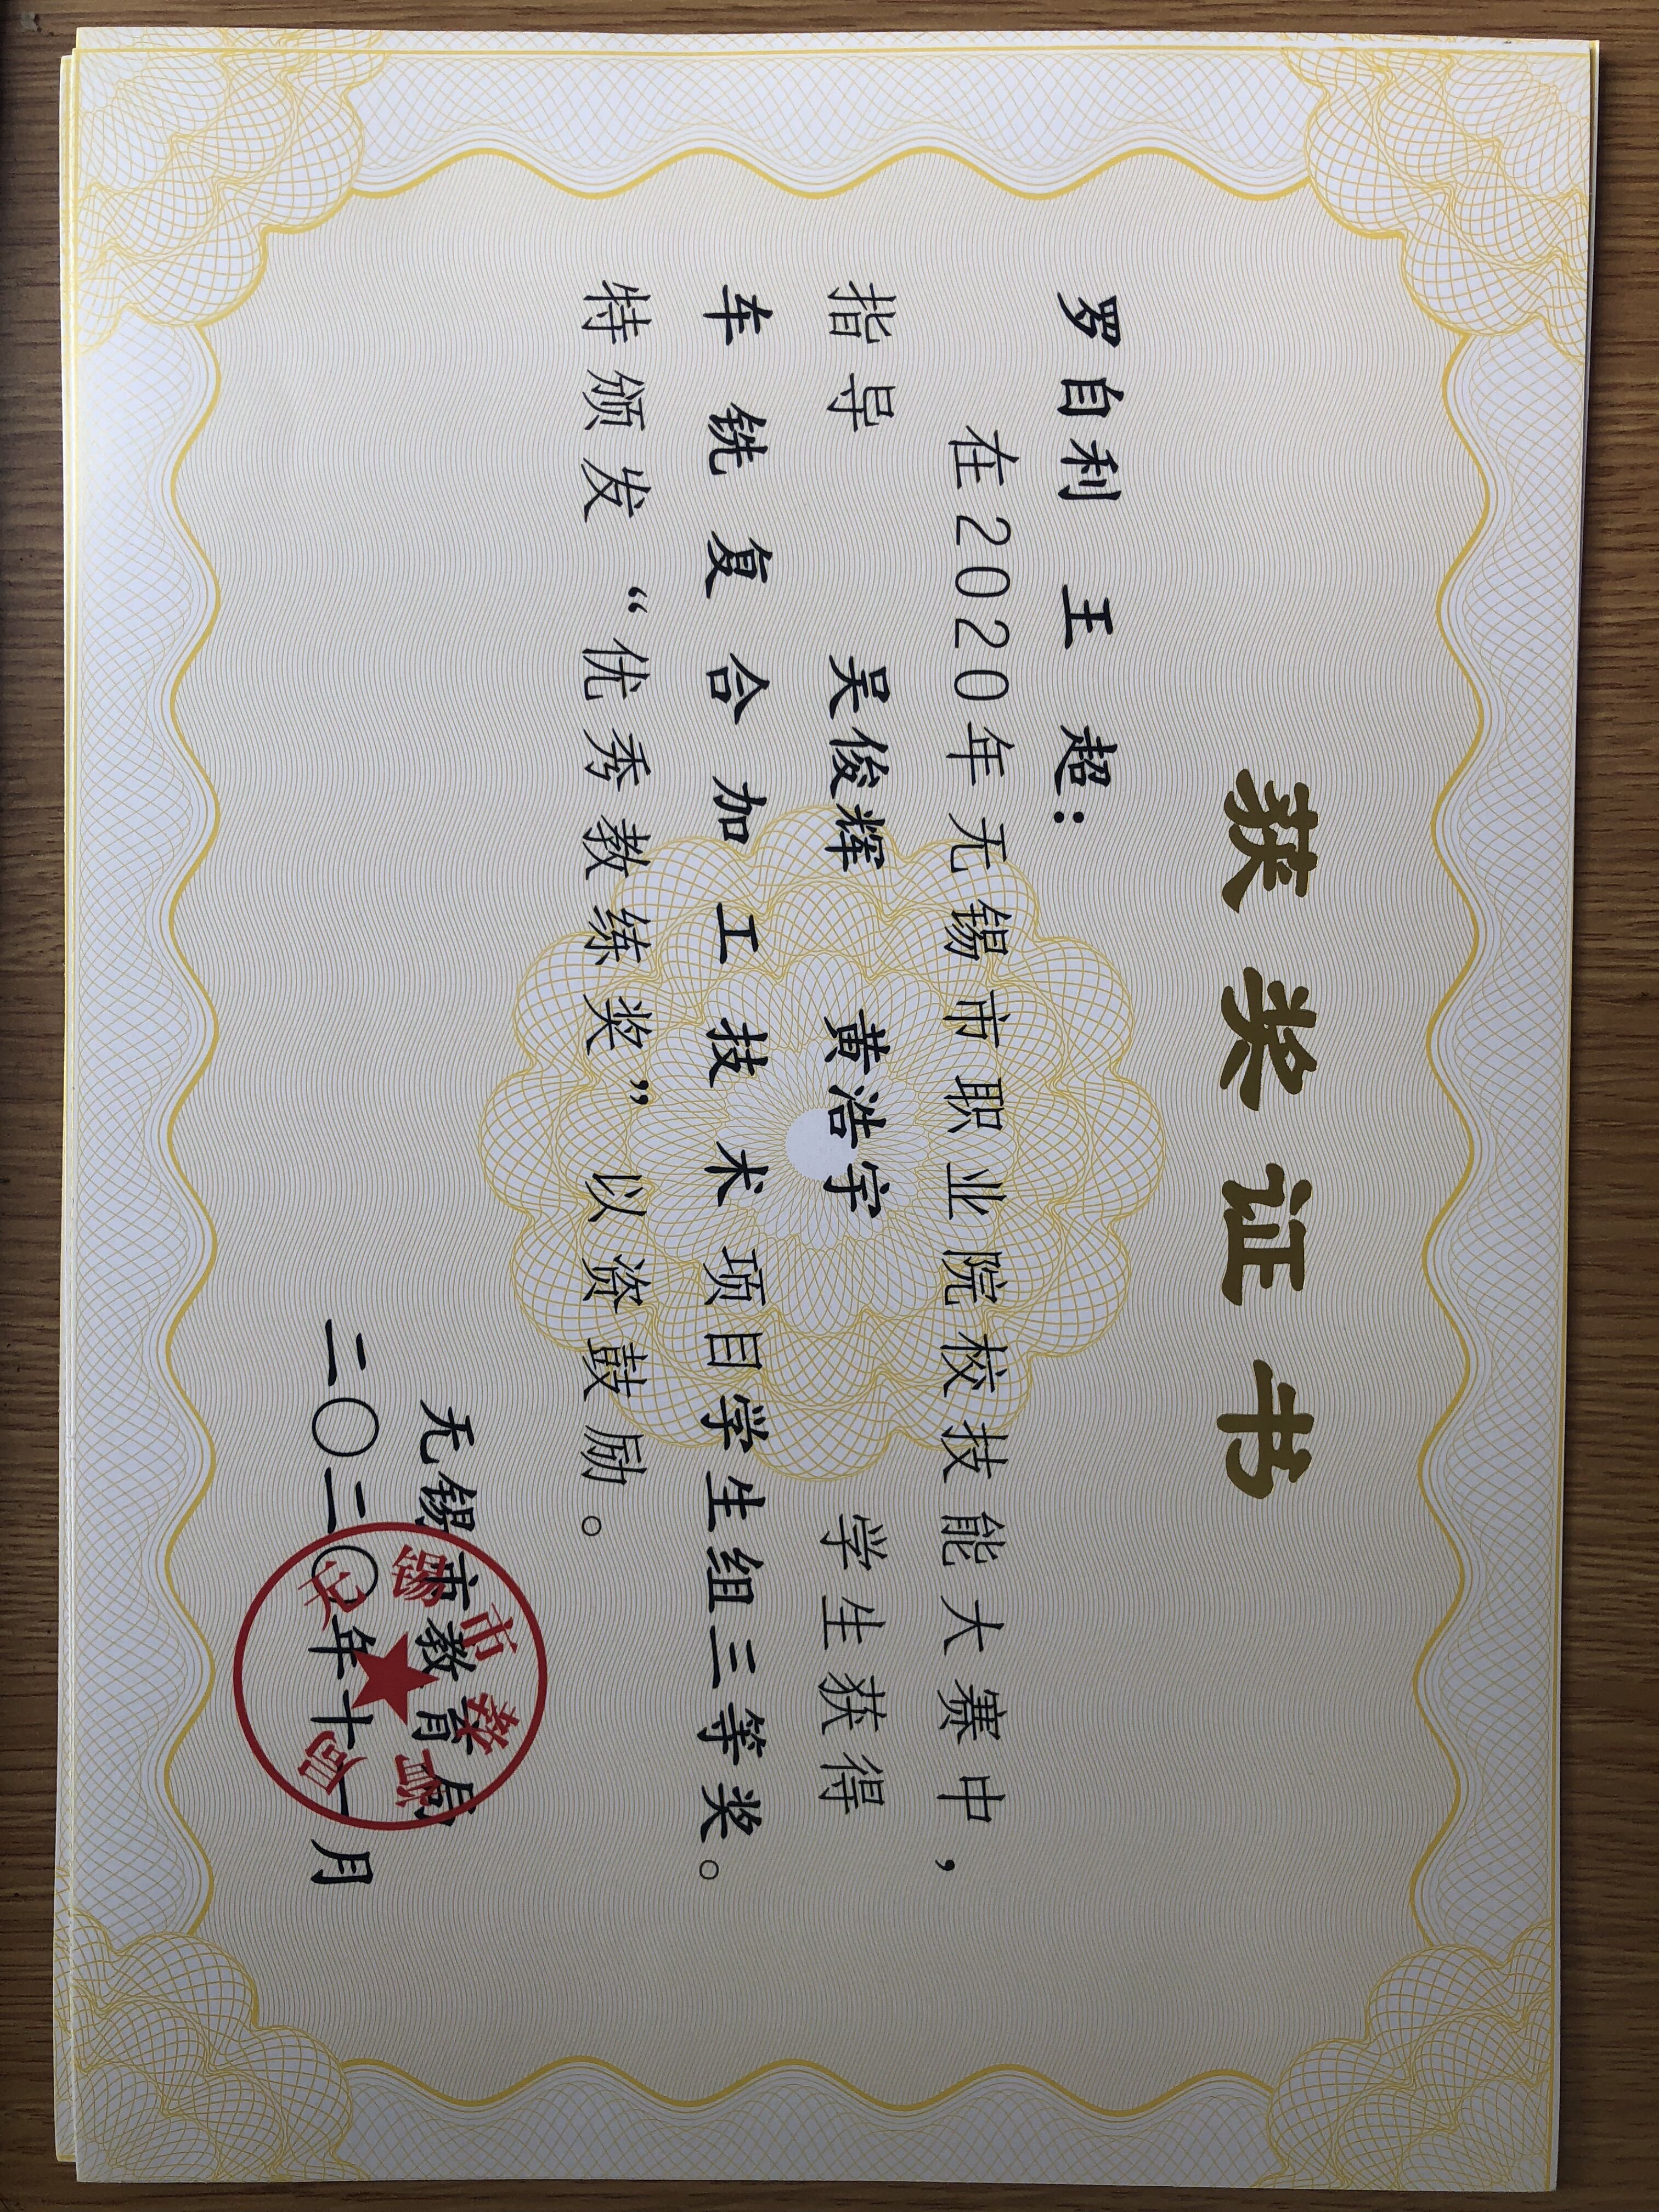 获奖证书
罗自利 王 超：
在2020年无锡市职业院校技能大赛中，
指导 吴俊辉 黄浩宇 学生获得
车铣复合加工技术项目学生组三等奖。
特颁发“优秀教练奖”以资鼓励。
无锡市教育局
二〇二〇年十一月
无锡市教育局